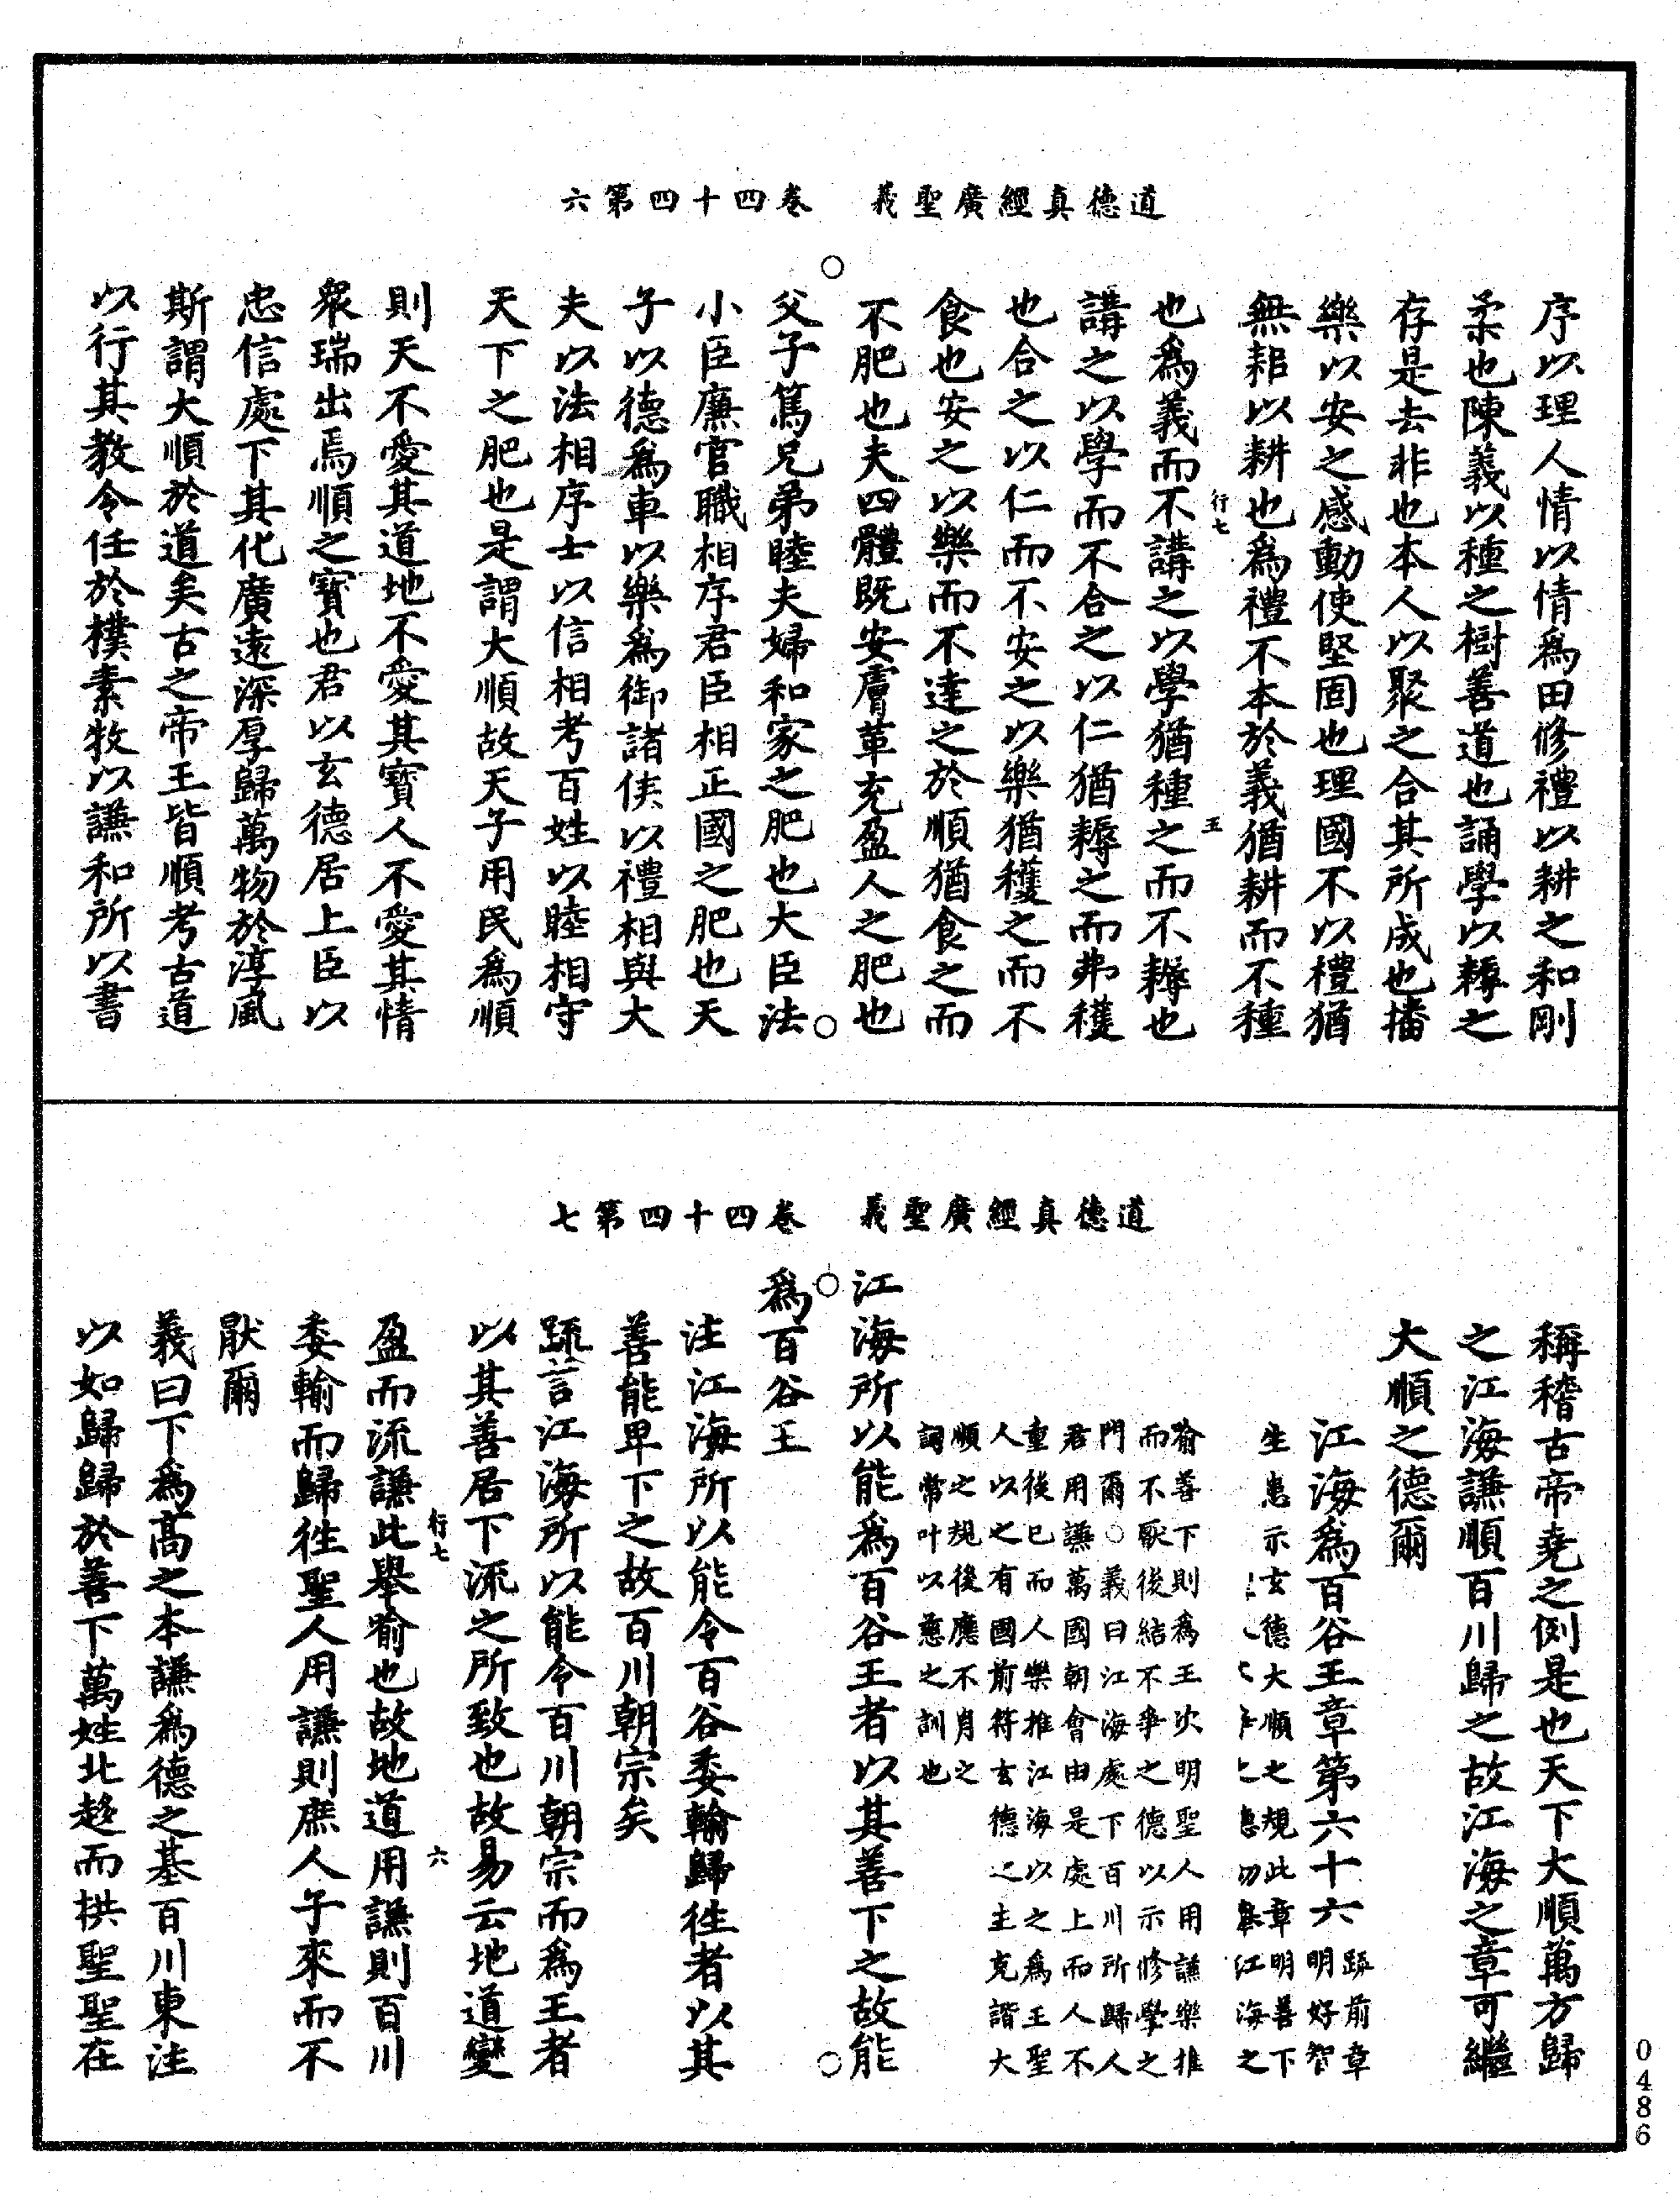 道德真經廣聖義　卷四十四第六
序以理人情以情爲田修禮以耕之和剛
柔也陳義以種之樹善道也誦學以耨之
存是去非也本人以聚之合其所成也播
樂以安之感動使堅固也理國不以禮猶
無耜以耕也爲禮不本於義猶耕而不種
行七　王
也爲義而不講之以學猶種之而不耨也
講之以學而不合之以仁猶耨之而弗穫
也合之以仁而不安之以樂猶穫之而不
食也安之以樂而不達之於順猶食之而
不肥也夫四體既安膚革充盈人之肥也
○　○
父子篤兄弟睦夫婦和家之肥也大臣法
小臣廉官職相序君臣相正國之肥也天
子以德爲車以樂爲御諸侯以禮相與大
夫以法相序士以信相考百姓以睦相守
天下之肥也是謂大順故天子用民爲順
則天不愛其道地不愛其寶人不愛其情
衆瑞出焉順之寶也君以玄德居上臣以
忠信處下其化廣遠深厚歸萬物於淳風
斯謂大順於道矣古之帝王皆順考古道
以行其教令任於樸素牧以謙和所以書
道德真經廣聖義　卷四十四第七
稱稽古帝堯之例是也天下大順萬方歸
之江海謙順百川歸之故江海之章可繼
大順之德爾
江海爲百谷王章第六十六
疏前章
明好智
生患示玄德大順之規此章明善下
江海之
喻善下則爲王次明聖人用謙樂推
而不厭後結不爭之德以示修學之
門爾○義曰江海處下百川所歸人
君用謙萬國朝會由是處上而人不
重後已而人樂推江海以之爲王聖
人以之有國前符玄德之主克諧大
順之規後應不肖之
詞常叶以慈之訓也
江海所以能爲百谷王者以其善下之故能
○　○
爲百谷王
注江海所以能令百谷委輸歸往者以其
善能卑下之故百川朝宗矣
疏言江海所以能令百川朝宗而爲王者
以其善居下流之所致也故易云地道變
行七　六
盈而流謙此舉喻也故地道用謙則百川
委輸而歸往聖人用謙則庶人子來而不
猒爾
義曰下爲高之本謙爲德之基百川東注
以如歸歸於善下萬姓北趍而拱聖聖在
0486